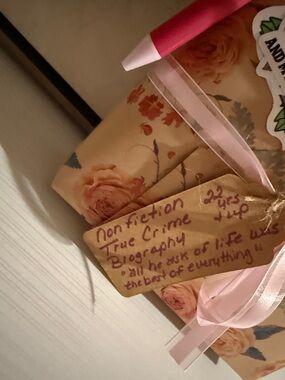 non fiction
True Crime
Biography
22
yrs
+ up
"all he ask of life was
the best of everything"
AND